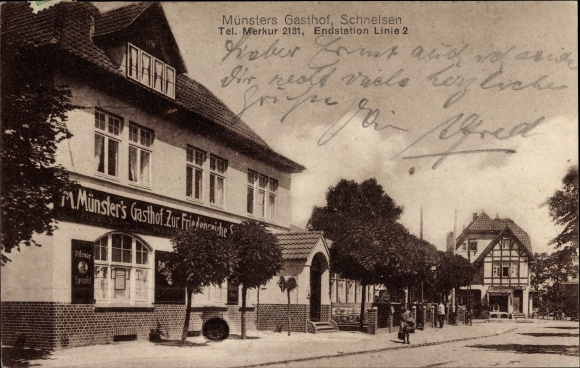 Münsters Gasthof, Schnelsen
Tel. Merkur 2131, Endstation Linie 2
Lieber Ernst auch ich sende
Dir recht viele herzliche
Grüße Dein
Alfred
M. Münster's Gasthof Zur Friedenseiche
Pilsner